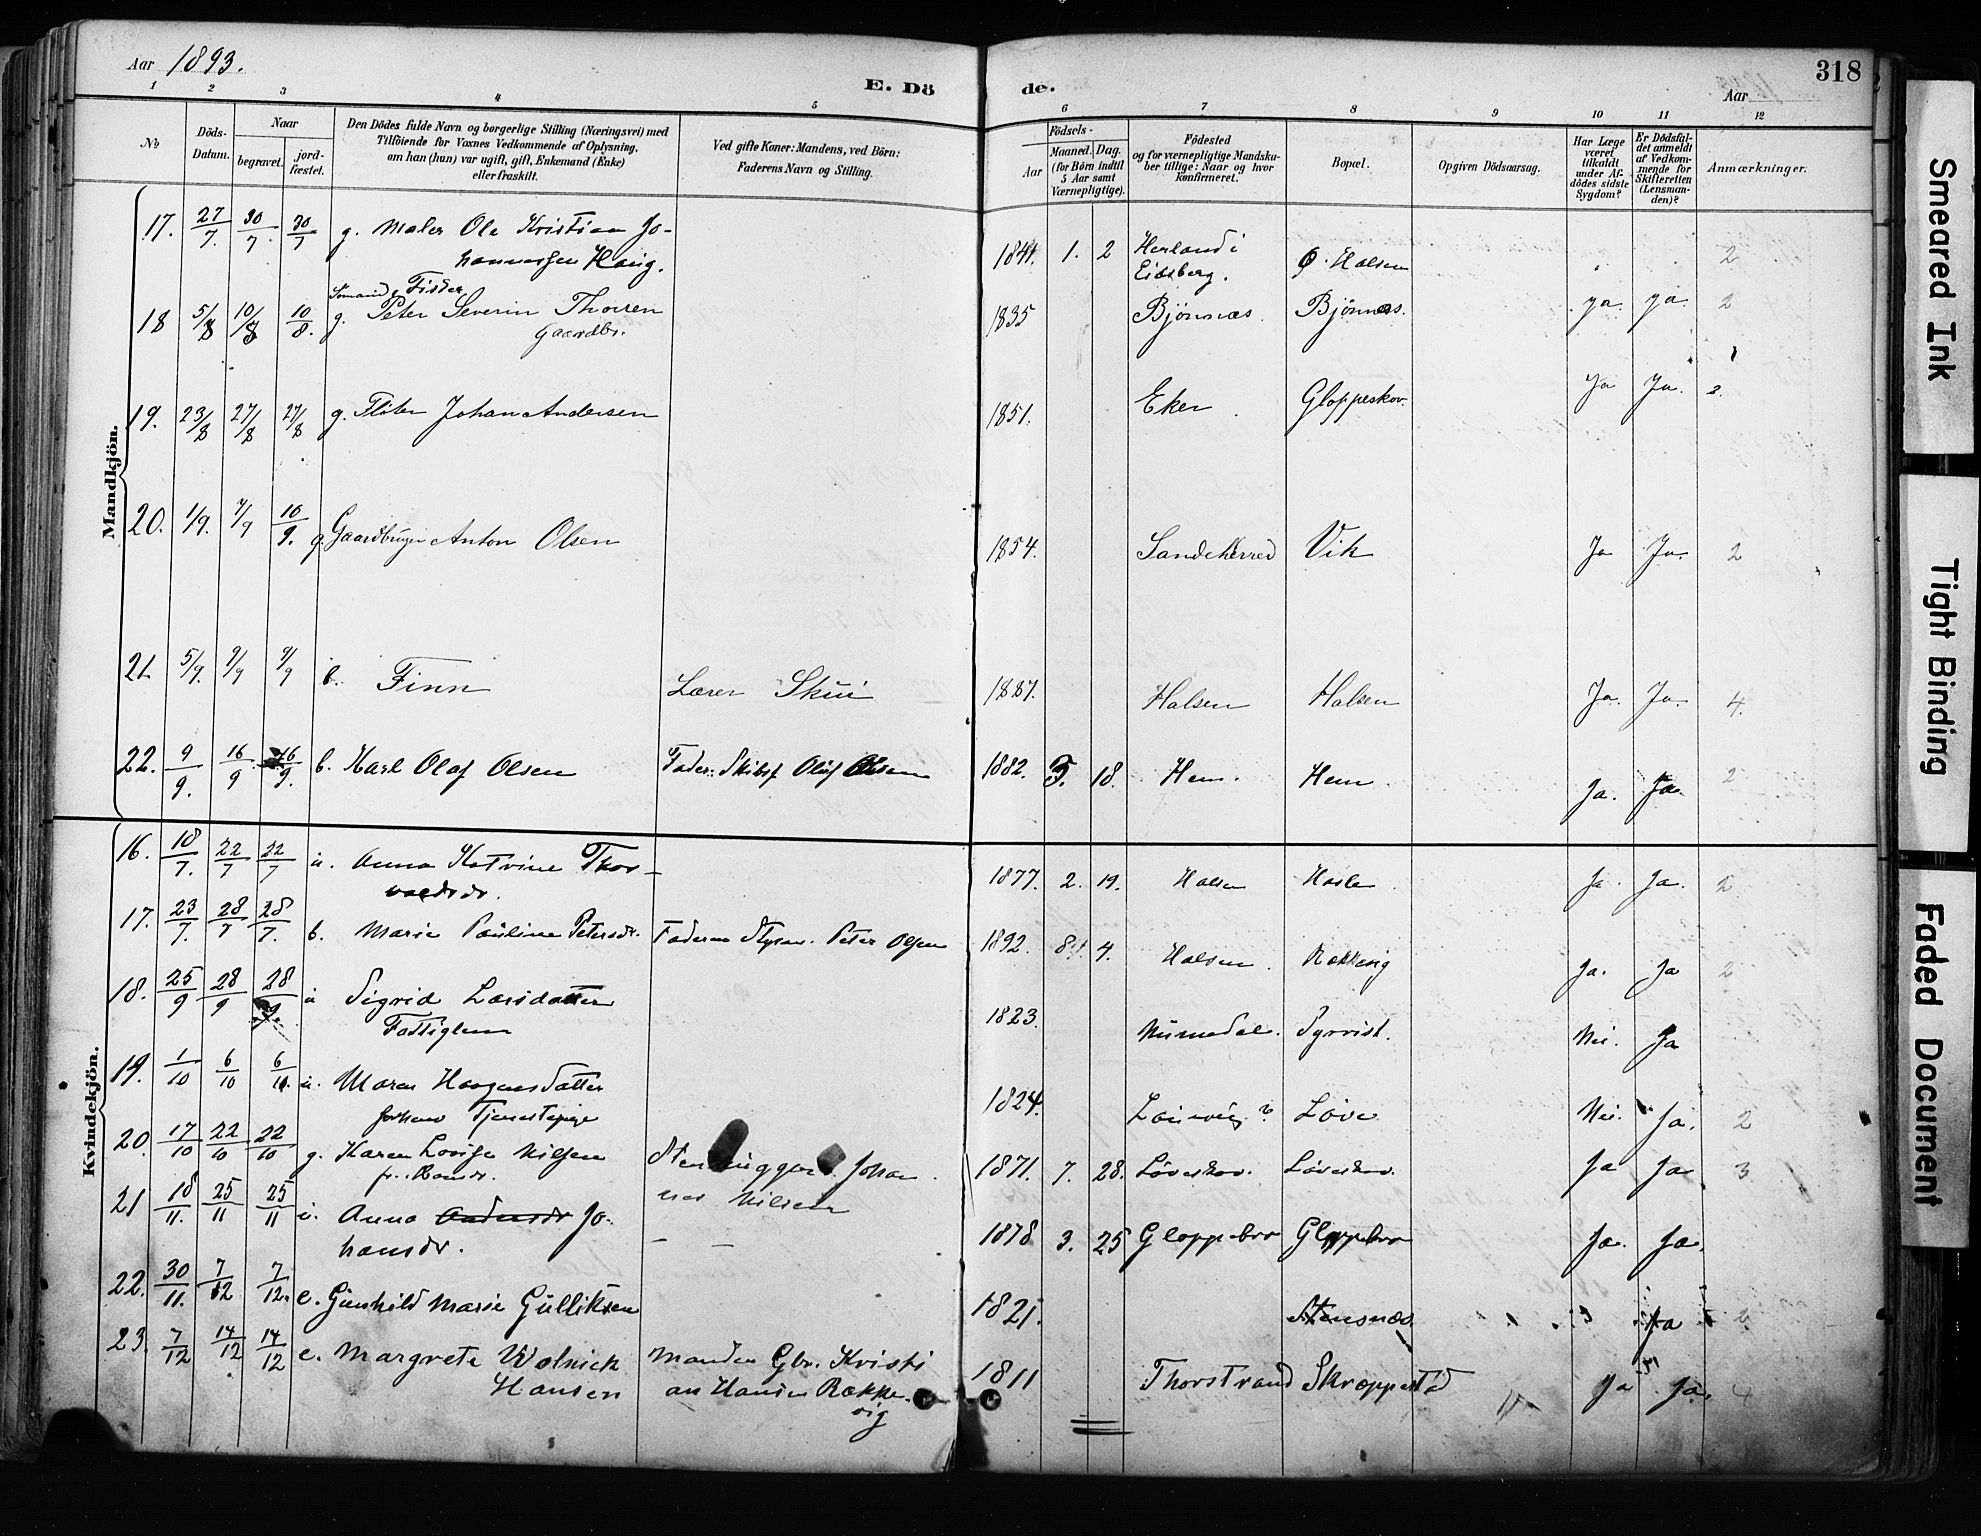 Aar 1893.
E. Dö
de.
318
Aar
1 2 3 4 5 6 7 8 9 10 11 12
No
Döds-Datum.
Naar
begravet.
jord-fæstet.
Den Dödes fulde Navn og borgerlige Stilling (Næringsvei) med
Tilföiende for Voxnes Vedkommende af Oplysning,
om han (hun) var ugift, gift, Enkemand (Enke)
eller fraskilt.
Ved gifte Koner: Mandens, ved Börn:
Faderens Navn og Stilling.
Födsels-
Aar
Maaned. Dag.
(for Börn indtil
5 Aar samt
Værnepligtige).
Födested
og for værnepligtige Mandska-
ber tillige: Naar og hvor
konfirmeret.
Bopæl.
Opgiven Dödsaarsag.
Har Læge
været
tilkaldt
under Af-
dödes sidste
Sygdom?
Er Dödsfal-
det anmeldt
af Vedkom-
mende for
Skifteretten
(Lensman-
den)?
Anmærkninger.
Mandkjön.
17. 27/7. 30/7. 30/7 g. Maler Ole Kristian Jo-
hannessen Haug. 1841. 1. 2 Herland i
Eidsberg. Ø. Halsen 2
Sømand, Fisker
18 5/8 10/8 10/8. g. Peter Severin Thoresen
Gaardbr. 1835 Bjönnæs. Bjönnæs. ja. ja. 2
19. 23/8 27/8 27/8 g. Fløter Johan Andersen 1851. Eker. Gloppeskov. Ja Ja. 2.
20. 1/9. 7/9 10/9. g. Gaardbruger Anton Olsen 1854. Sandeherred Vik Ja Ja. 2
21. 5/9. 9/9 9/9 b. Finn Lærer Skui 1887. Halsen Halsen Ja. Ja. 4.
22. 9/9. 16/9 16/9. b. Karl Olaf Olsen Fader: Skibsf Oluf Olsen 1882. 3. 18. Hem. Hem. Ja. Ja. 2
Kvindekjön.
16. 18/7. 22/7 22/7 u. Anna Katrine Thor-
valdsdr. 1877. 2. 19. Halsen Hasle. Ja. Ja. 2
17. 23/7. 28/7 28/7. b. Marie Pauline Petersdr. Faderen Styrm. Peter Olsen 1892. 8 4. Halsen. Rækkevig Ja. Ja 2
18. 25/9 28/9 28/9 u Sigrid Larsdatter
Fattiglem 1823. Numedal. Syrrist. Nei. Ja
19. 1/10 6/10 6/10. u. Maren Haagensdatter
forhenv Tjenestepige 1824. Laurvig? Løve Nei. Ja. 2
20. 17/10 22/10 22/10 g. Karen Lovise Nilsen
Stenhugger Johan
nes Nilsen 1871. 7. 28. Løveskov. Løveskov. Ja Ja 3
21 18/11. 25/11 25/11 u. Anna Andersdr Jo-
hansdr. — — 1878 3. 25 Gloppebro Gloppebro Ja. Ja.
22. 30/11. 7/12 7/12. e. Gunhild Marie Gulliksen 1821. Stensnæs. Ja 2
23. 7/12 14/12 14/12 e. Margrete Wolnick
Hansen Manden Gbr. Kristi
an Hansen Række-
vig 1811 Thorstrand Skræppestad Ja Ja. 4
Smeared Ink
Tight Binding
Faded Document